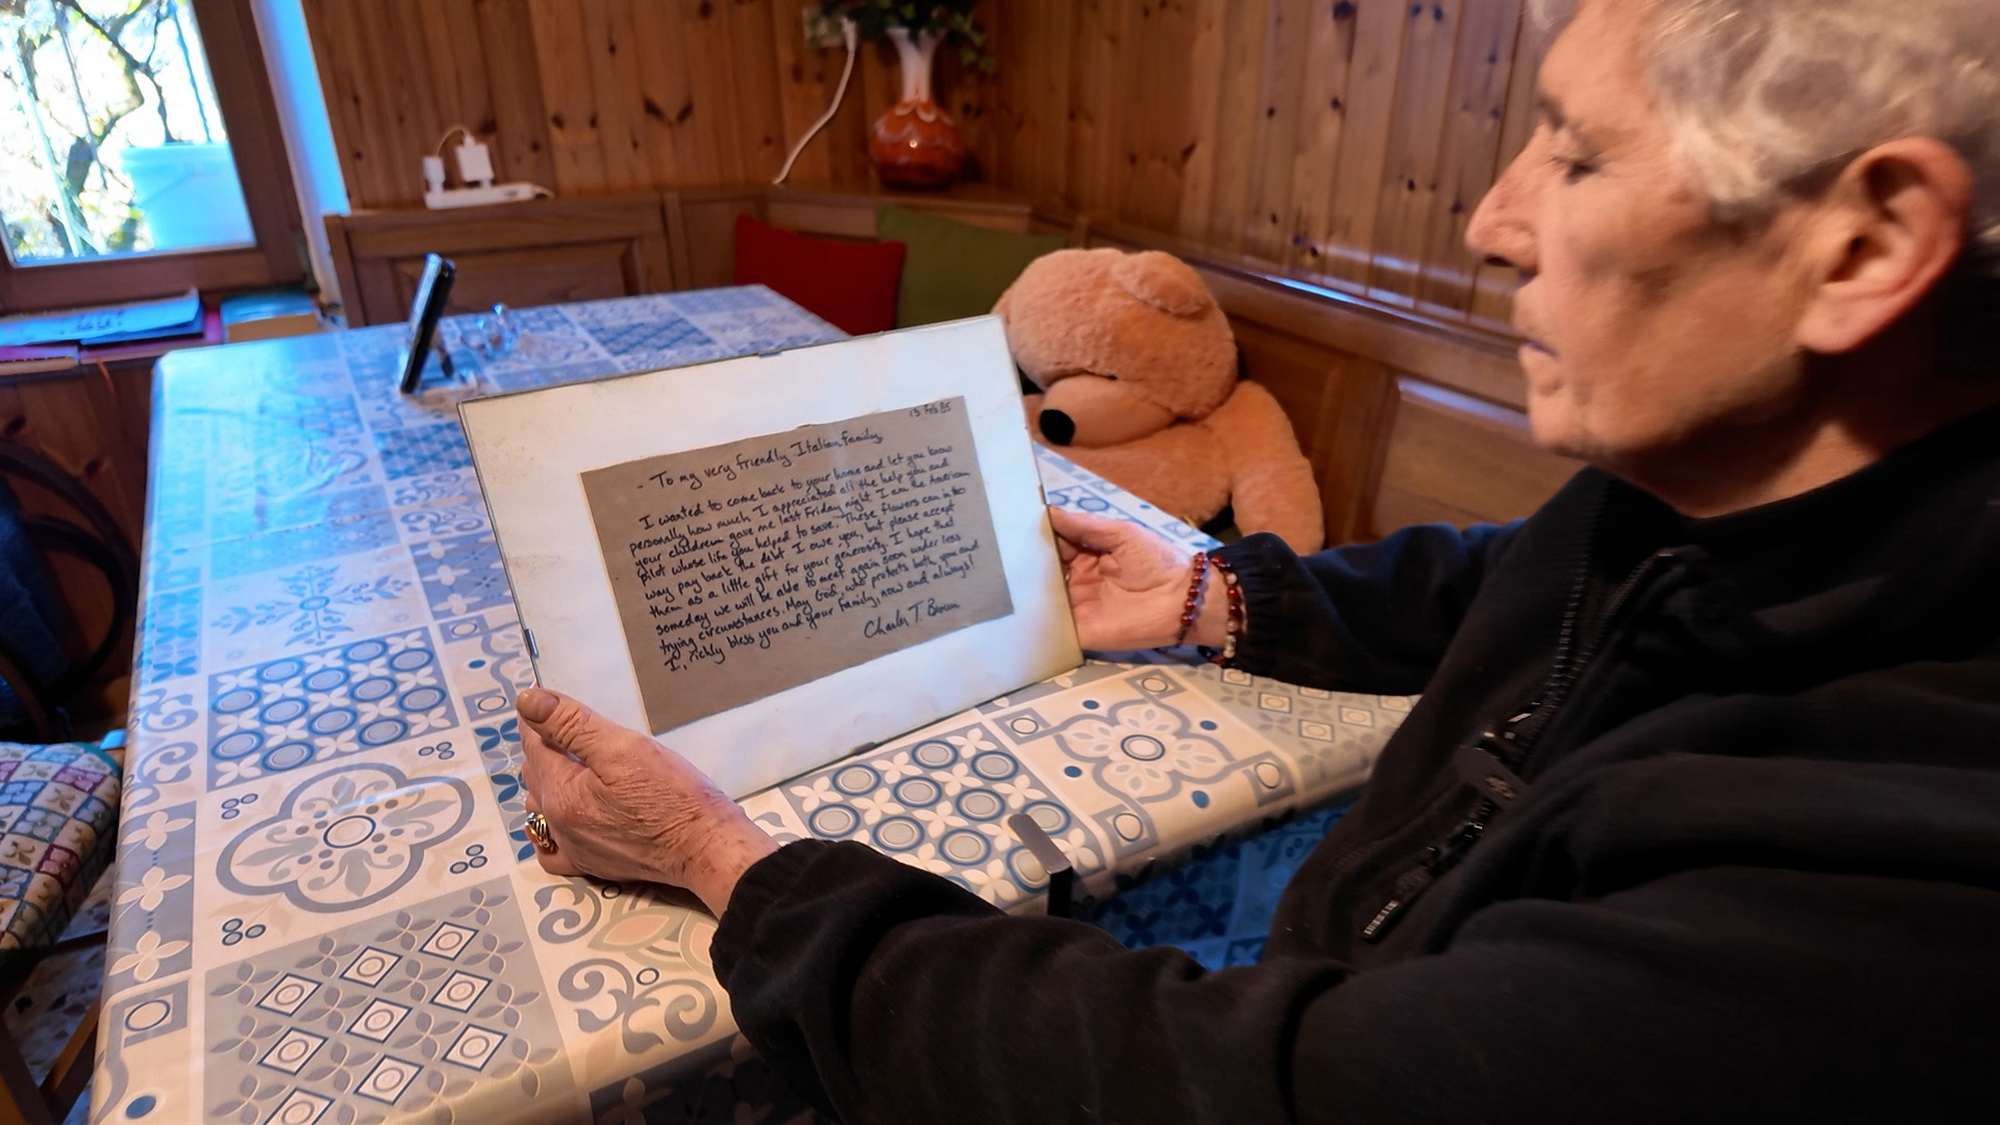 13 Feb 85
- To my very friendly Italian family,
I wanted to come back to your home and let you know
personally how much I appreciated all the help you and
your children gave me last Friday night. I am the American
pilot whose life you helped to save. These flowers can in no
way pay back the debt I owe you, but please accept
them as a little gift for your generosity. I hope that
someday we will be able to meet again soon under less
trying circumstances. May God, who protects both you and
I, richly bless you and your family, now and always!
Charles T. Brown